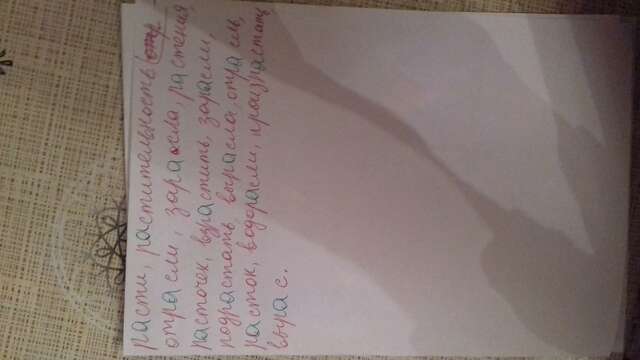 расти, растительность
отрасли, зарасла, растения,
росточек, взрастить, зарасли,
подрастать вырасла, отрасль,
росток, водорасли, произрастать
вырас.